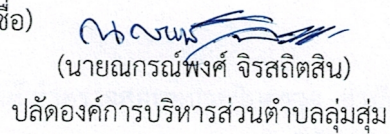 ชื่อ)
(นายณกรณ์พงศ์ จิรสถิตสิน)
ปลัดองค์การบริหารส่วนตำบลลุ่มสุ่ม